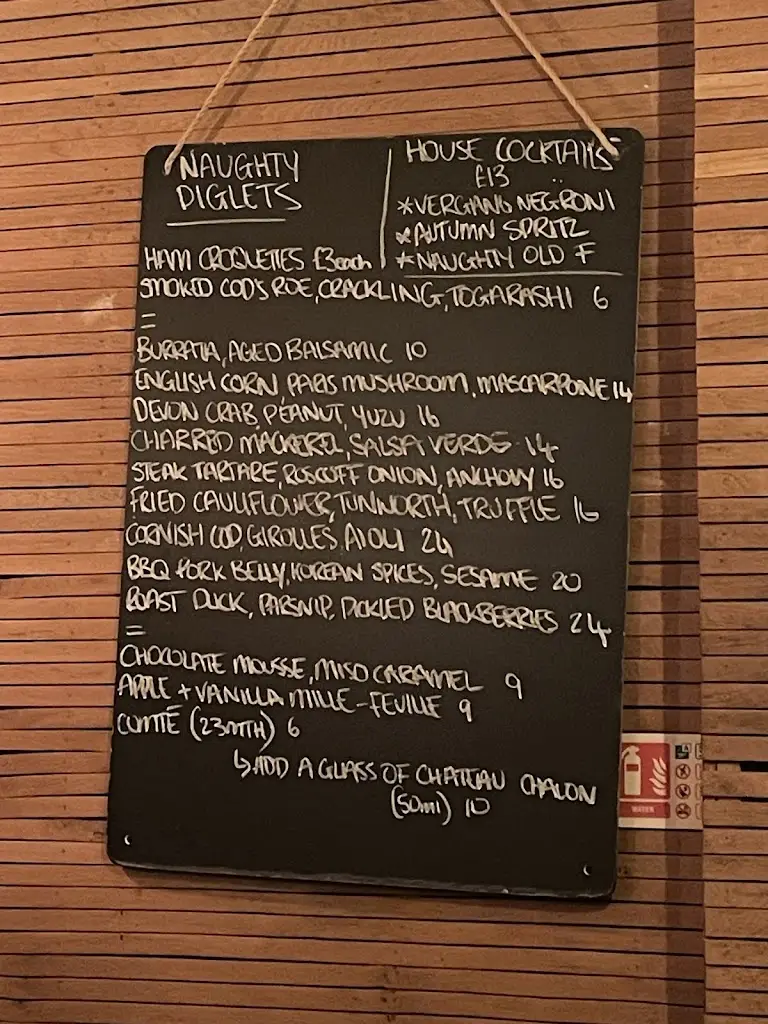 NAUGHTY
PIGLETS
HOUSE COCKTAILS
£13
*VERGANO NEGRONI
*AUTUMN SPRITZ
*NAUGHTY OLD F
HAM CROQUETTES £3each
SMOKED COD'S ROE, CRACKLING, TOGARASHI 6
=
BURRATA, AGED BALSAMIC 10
ENGLISH CORN PARIS MUSHROOM, MASCARPONE 14
DEVON CRAB, PEANUT, YUZU 16
CHARRED MACKEREL, SALSA VERDE 14
STEAK TARTARE, ROSCOFF ONION, ANCHOVY 16
FRIED CAULIFLOWER, TUNWORTH, TRUFFLE 16
CORNISH COD, GIROLLES, AIOLI 24
BBQ PORK BELLY, KOREAN SPICES, SESAME 20
ROAST DUCK, PARSNIP, PICKLED BLACKBERRIES 24
=
CHOCOLATE MOUSSE, MISO CARAMEL 9
APPLE + VANILLA MILLE-FEUILLE 9
COMTÉ (23MTH) 6
↳ ADD A GLASS OF CHATEAU CHALON
(50ml) 10
WATER